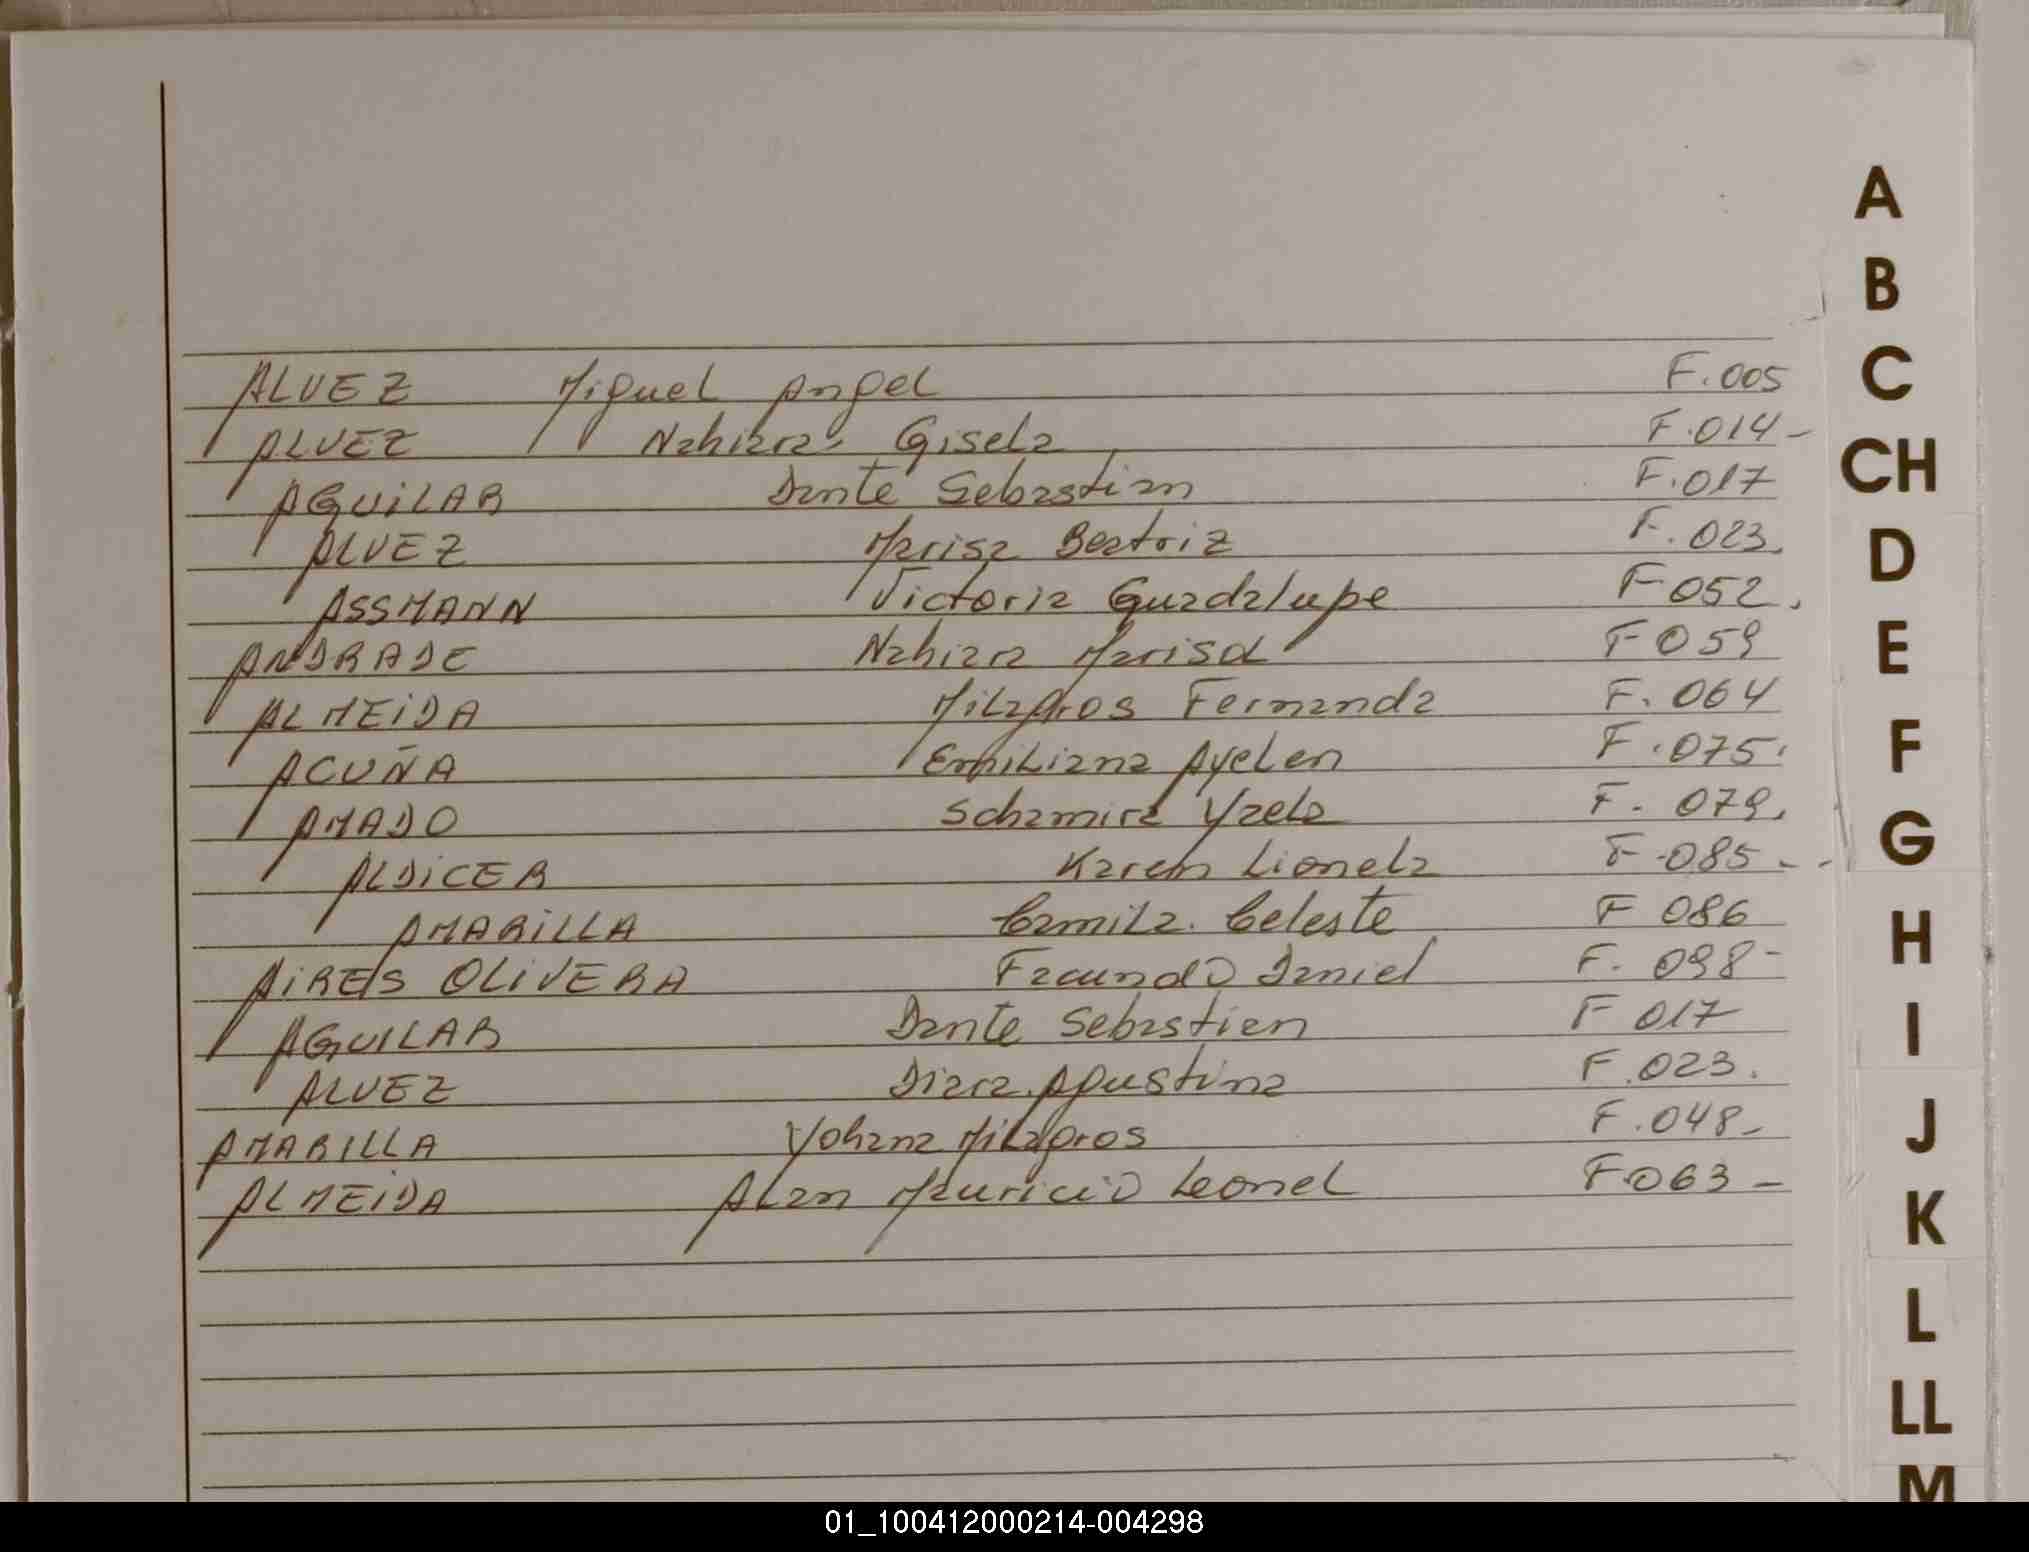 ALVEZ Miguel Angel F.005
ALVEZ Nahiara Gisela F.014-
AGUiLAR Dante Sebastian F.017
ALVEZ Marisa Beatriz F.023.
ASSMANN Victoria Guadalupe F052.
ANDRADE Nahiara Marisol F059
ALMEiDA Milagros Fernanda F.064
ACUÑA Emiliana Ayelen F.075.
AMADO Schamira Yaela F.079.
ALDiCER Karen Lionela F-085--
AMARiLLA Camila. Celeste F 086
AiRES OLiVERA Facundo Daniel F.098-
AGUILAR Dante Sebastien F 017
ALVEZ Diara Agustina F.023.
AMARILLA Yohana Milagros F.048-
ALMEiDA Alan Mauricio Leonel F063-
A
B
C
CH
D
E
F
G
H
I
J
K
L
LL
M
01_100412000214-004298